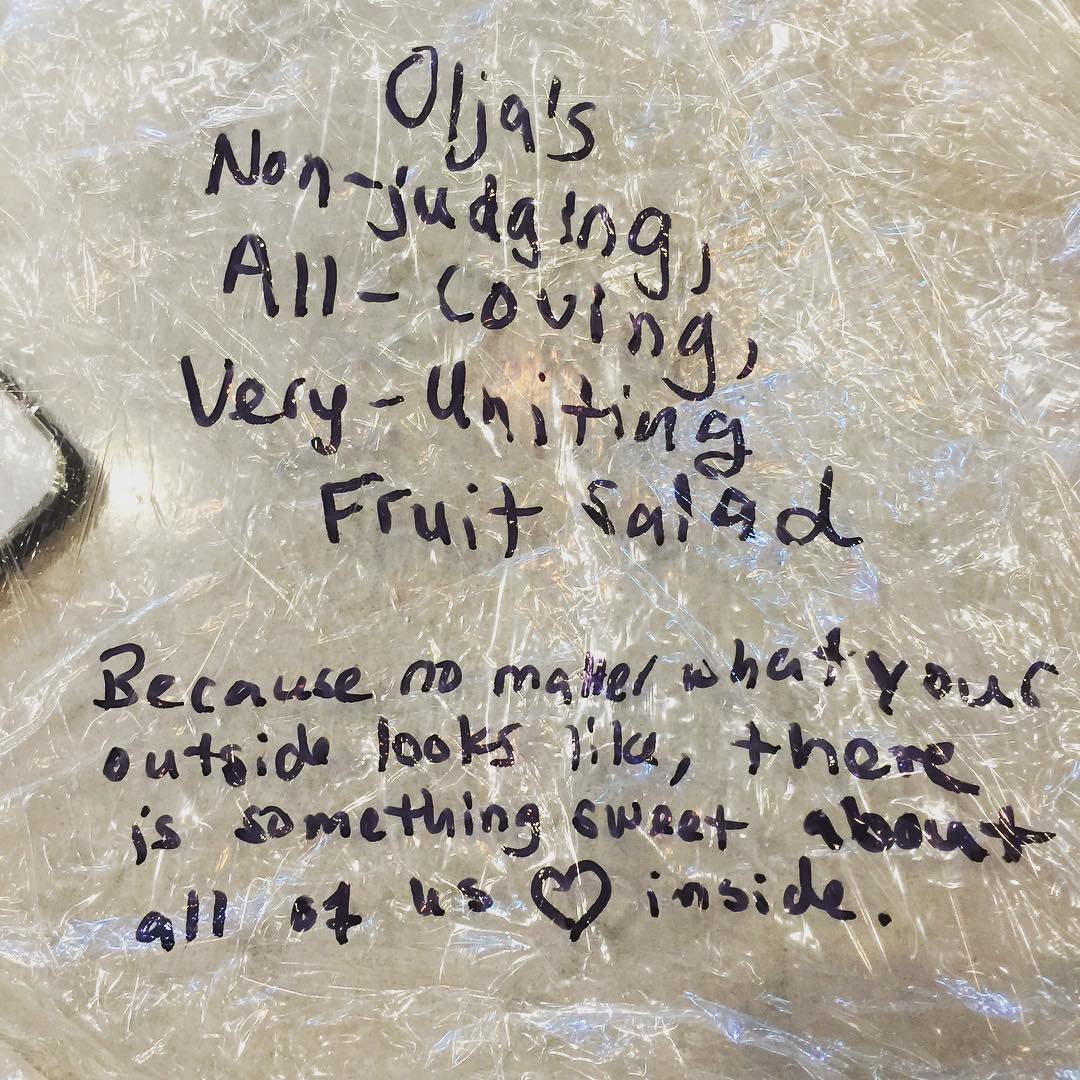 Olja's
Non-judging,
All-Loving,
Very-Uniting
Fruit Salad
Because no matter what your
outside looks like, there
is something sweet about
all of us ♡ inside.